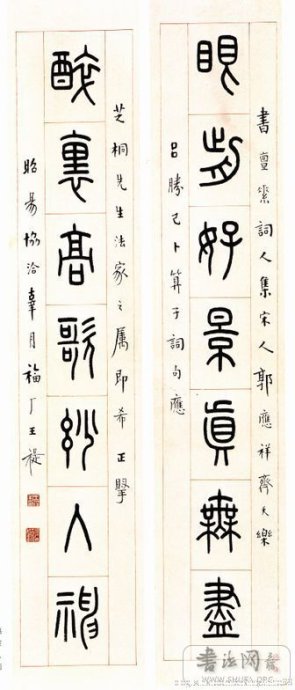 書亶素詞人集宋人郭應祥齊天樂
眼前好景真無盡
呂勝己卜算子詞句應
芝桐先生法家之属即希正擥
醉裏高歌玅入神
昭昜協洽辜月福厂王禔
书法网
WWW.SHUFA.ORG